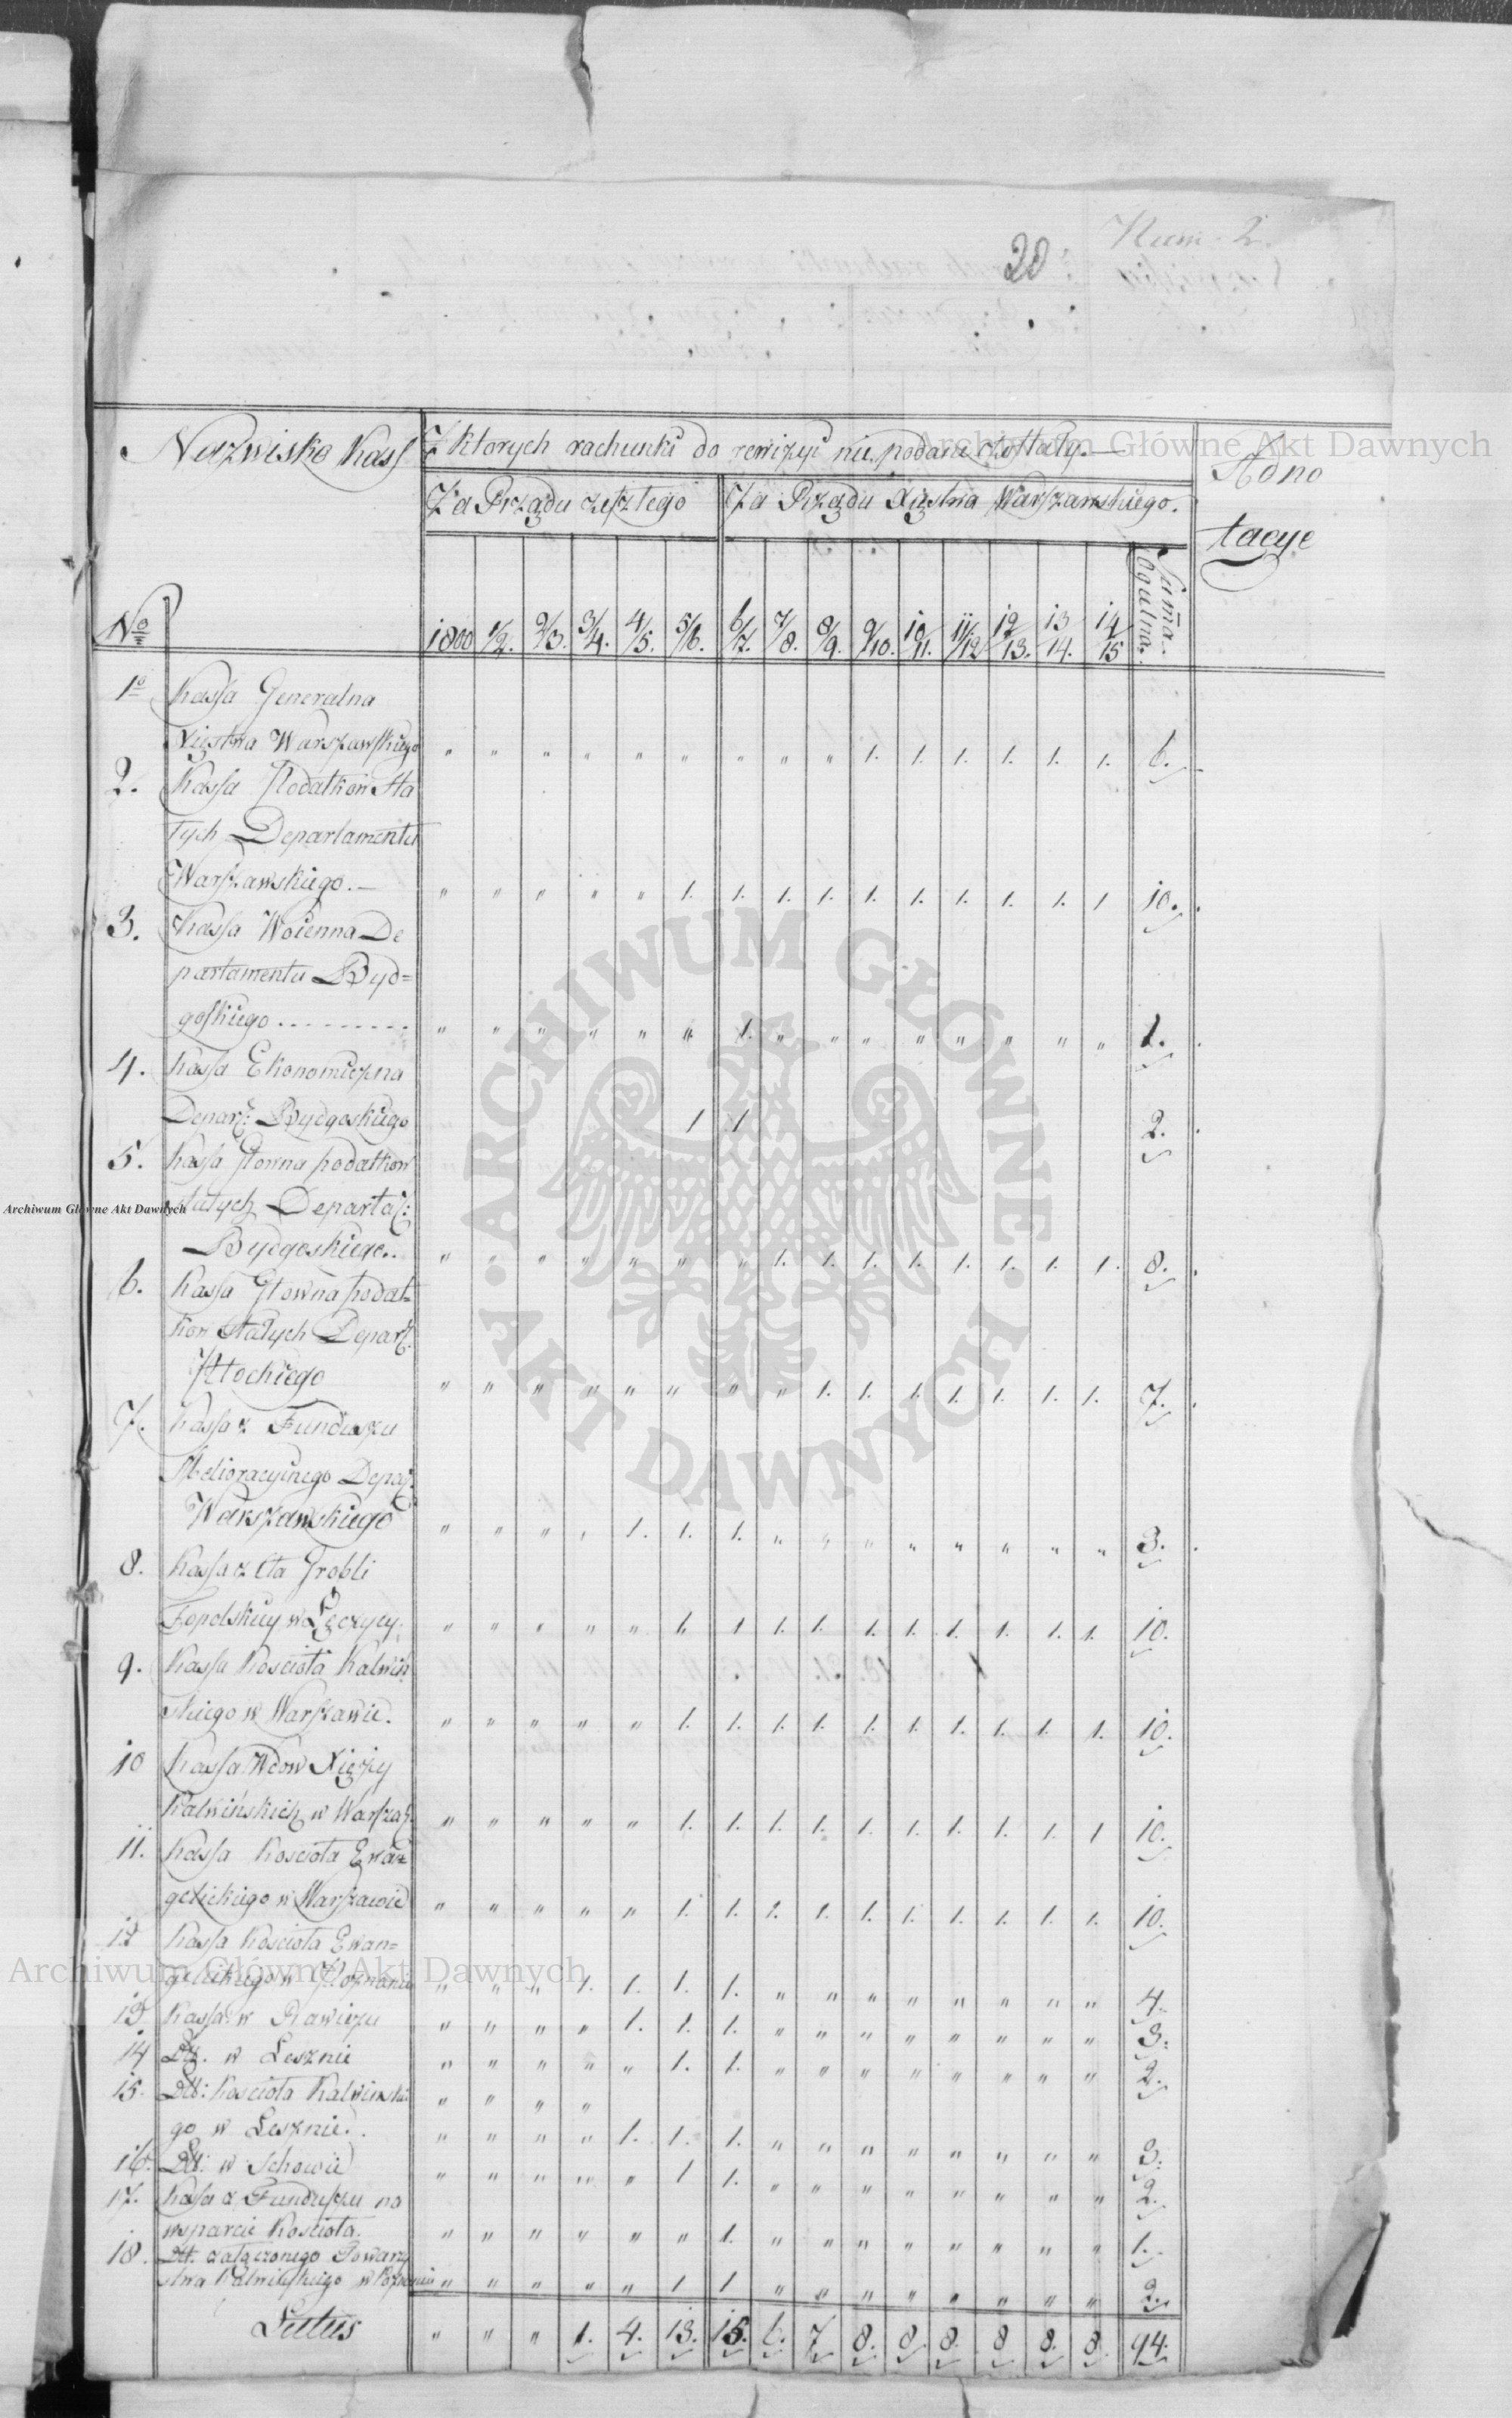 Num 2.
20
Nazwisko Kass
Z ktorych rachunki do rewizyi nie podane zostały. —
Adno
tacye
Za Rządu zeszłego
Za Rządu Xięstwa Warszawskiego.
Summa Ogulna.
No 1800 1/2. 2/3. 3/4. 4/5. 5/6. 6/7. 7/8. 8/9. 9/10. 10/11. 11/12 12/13. 13/14. 14/15
1o Kassa Generalna
Xięstwa Warszawskiego " " " " " " " " " 1. 1. 1. 1. 1. 1. 6.
2. Kassa Podatkow Sta
łych Departamentu
Warszawskiego. — " " " " " 1. 1. 1. 1. 1. 1. 1. 1. 1. 1 10.
3. Kassa Woienna De
partamentu Byd=
goskiego . . . . . . . . . " " " " " " 1. " " " " " " " " 1.
4. Kassa Ekonomiczna
Depart: Bydgoskiego 1 1 2.
5. Kassa Głowna podatkow
stałych Departa:
Bydgoskiego. . " " " " " " " 1. 1. 1. 1. 1. 1. 1. 1. 8.
6. Kassa Głowna podat=
kow Stałych Depart.
Płockiego " " " " " " " " 1. 1. 1. 1. 1. 1. 1. 7.
7. Kassa z Funduszu
Melioracyinego Depar:
Warszawskiego " " " " 1. 1. 1. " " " " " " " " 3.
8. Kassa z Cła Grobli
Topolskiey w Łęczycy. " " " " " 1. 1 1. 1. 1. 1. 1. 1. 1. 1. 10.
9. Kassa Kościoła Kalwiń
skiego w Warszawie. " " " " " 1. 1. 1. 1. 1. 1. 1. 1. 1. 1. 10.
10 Kassa Wdow Xięży
Kalwińskich w Warsza: " " " " " 1. 1. 1. 1. 1. 1. 1. 1. 1. 1 10.
11. Kassa Kościoła Ewan
gelickiego w Warszawie " " " " " 1. 1. 1. 1. 1. 1. 1. 1. 1. 1. 10.
12 Kassa Kościoła Ewan=
gelickiego w Poznaniu " " " 1. 1. 1. 1. " " " " " " " " 4.
13 Kassa w Rawiczu " " " " 1. 1. 1. " " " " " " " " 3.
14 Dtt. w Lesznie " " " " " 1. 1. " " " " " " " " 2.
15. Dtt: Kościoła Kalwinskie " " " "
go w Lesznie. . " " " " 1. 1. 1. " " " " " " " " 3.
16. Dtt: w Schowie " " " " " 1 1. " " " " " " " " 2.
17. Kassa z Funduszu na
wsparcie Kościoła. " " " " " " 1. " " " " " " " " 1.
18. Dtt. załączonego Towarzy
stwa Kalwińskiego w Poznaniu " " " " " 1 1 " " " " " " " " 2.
Latus " " " 1. 4. 13. 15. 6. 7 8. 8. 8. 8 8. 8. 94.
Archiwum Główne Akt Dawnych
Archiwum Główne Akt Dawnych
Archiwum Główne Akt Dawnych
ARCHIWUM GŁÓWNE • AKT DAWNYCH •